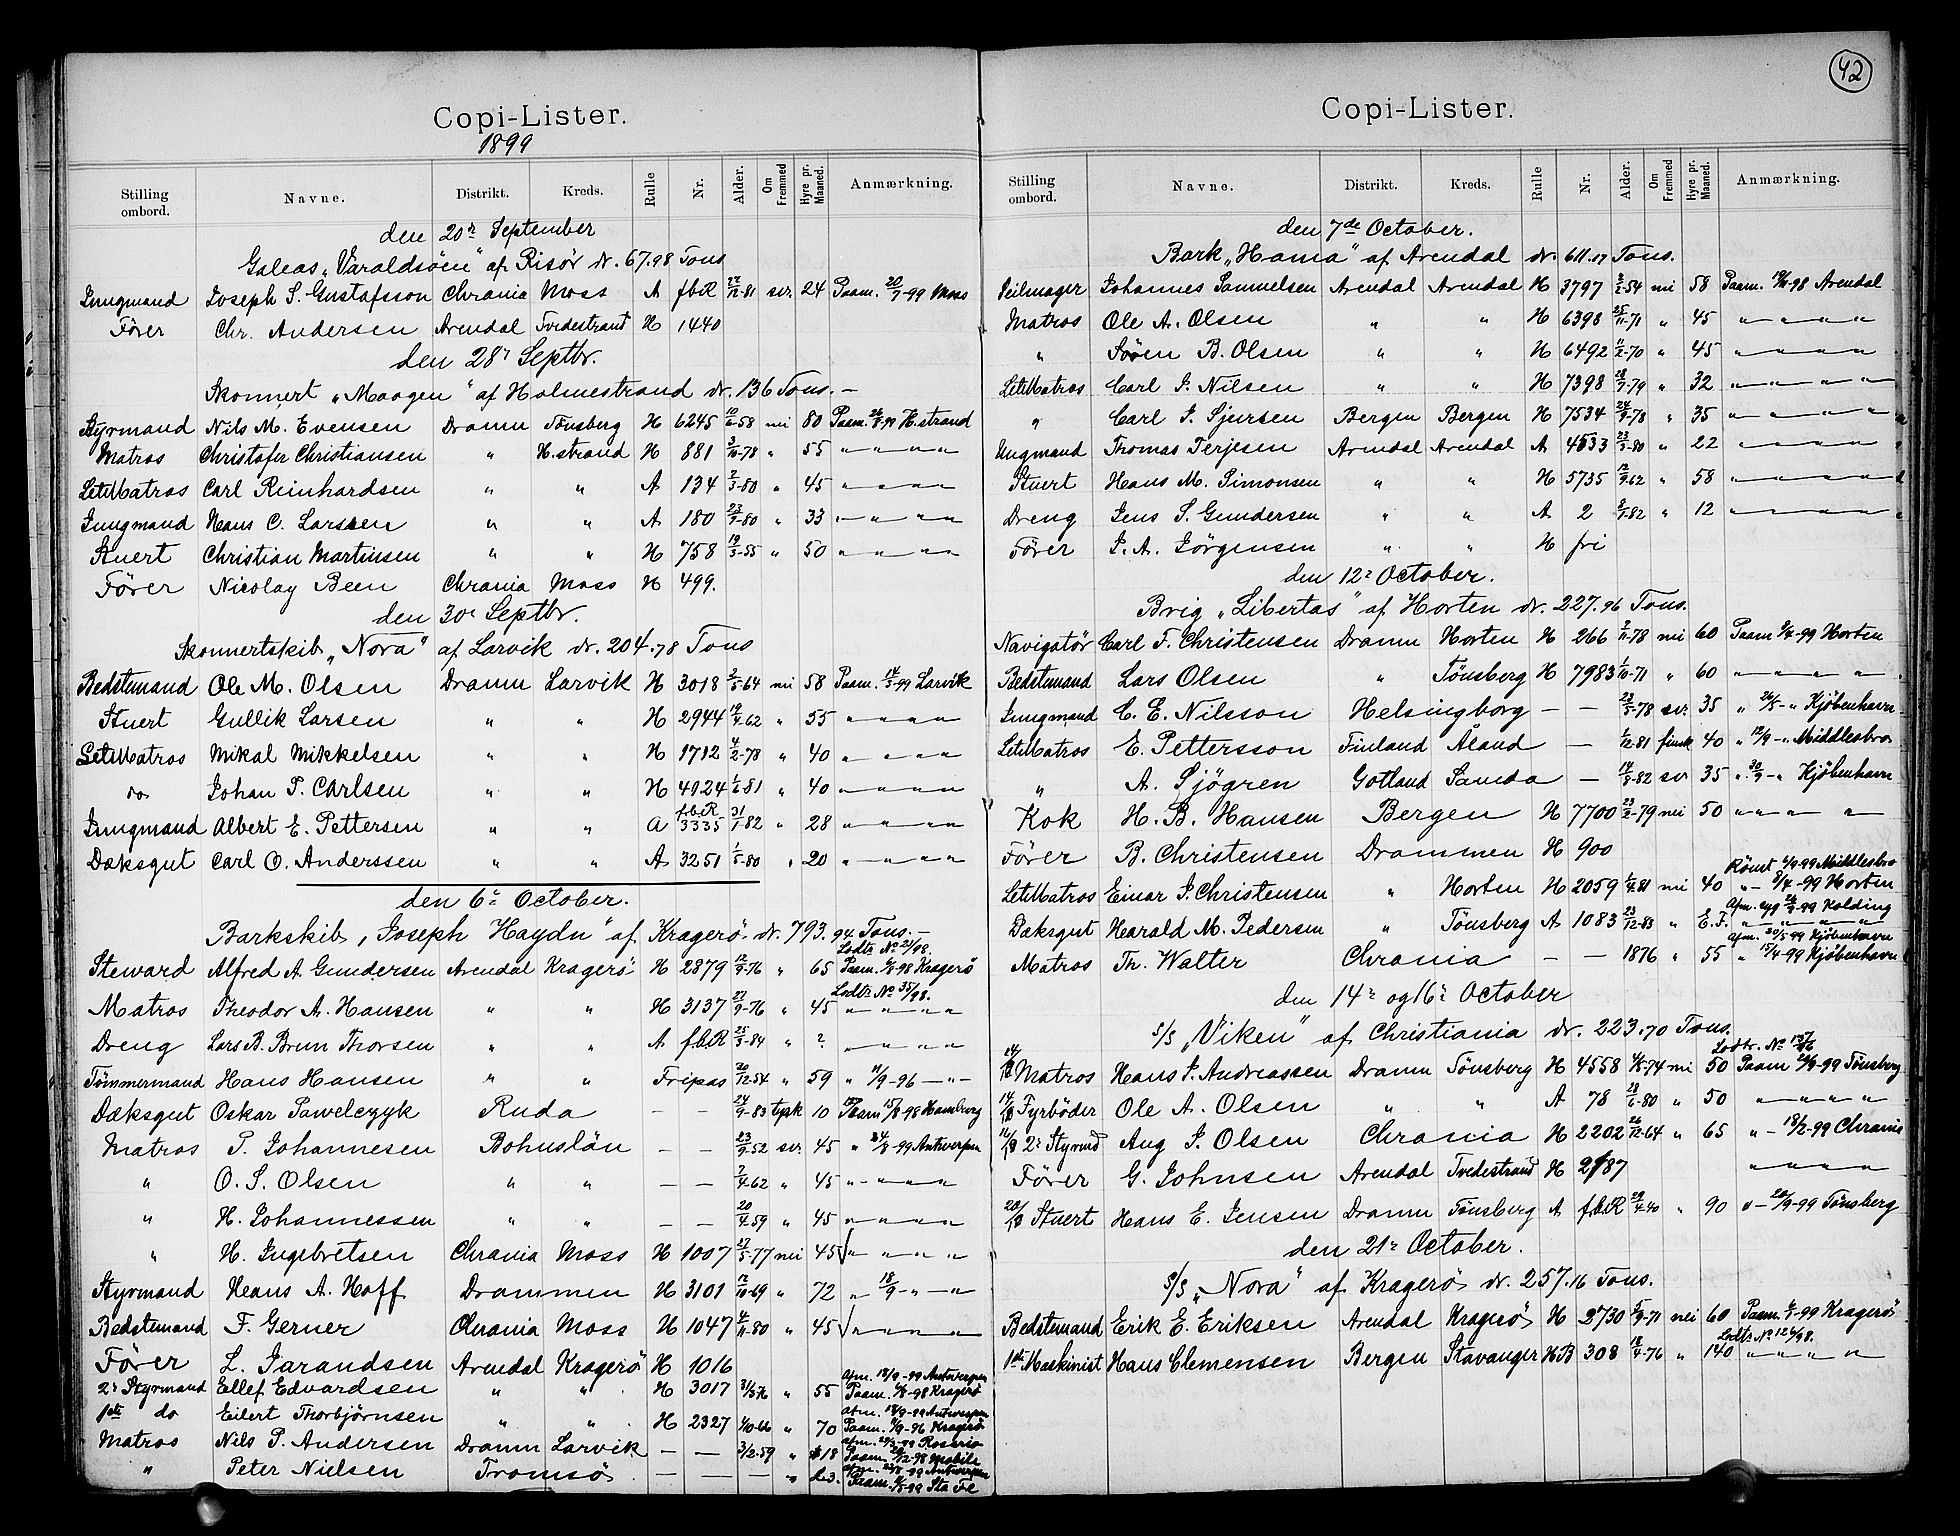 42
Copi-Lister.
1899
Stilling ombord. Navne. Distrikt. Kreds. Rulle Nr. Alder. Om Fremmed Hyre pr. Maaned. Anmærkning.
den 20r September
Galeas „Varaldsöen" af Risör dr. 67.98 Tons
Jungmand Joseph S. Gustafsson Chrania Moss A fbR 27/12-81 sv. 24 Paam. 20/7-99 Moss
Förer Chr. Andersen Arendal Tvedestrand H 1440
den 28r Septbr.
Skonnert „Maagen" af Holmestrand dr. 136 Tons. —
Styrmand Nils M. Evensen Dramn Tönsberg H 6245 10/6-58 nei 80 Paam. H.strand
Matros Christofer Christiansen " H.strand H 881 3/10-78 " 55 " " " "
LetMatros Carl Reinhardsen " " A 134 2/3-80 " 45 " " " "
Jungmand Hans C. Larssen " " A 180 23/9-80 " 33 " " " "
Stuert Christian Martinsen " " H 758 19/3-55 " 50 " " " "
Förer Nicolay Been Chrania Moss H 499.
den 30r Septbr.
Skonnertskib „Nora" af Larvik dr. 204.78 Tons
Bedstemand Ole M. Olsen Dramn Larvik H 3018 2/5-64 nei 58 Paam. 14/3-99 Larvik
Stuert Gullik Larsen " " H 2944 19/4-62 " 55 " " " "
LetMatros Mikal Mikkelsen " " H 1712 4/2-78 " 40 " " " "
do Johan P. Carlsen " " H 4924 1/6-81 " 40 " " " "
Jungmand Albert E. Pettersen " " A fbR 3335 31/1-82 " 28 " " " "
Dæksgut Carl O. Anderssen " " A 3251 1/5-80 " 20 " " " "
den 6te October.
Barkskib „Joseph Haydn" af Kragerö dr. 793.94 Tons. —
Lodtr. No 21/98.
Steward Alfred A. Gundersen Arendal Kragerö H 2879 12/9-76 " 65 Paam. 6/8-98 Kragerö
Lodtr. No 35/98.
Matros Theodor A. Hansen " " H 3137 27/9-76 " 45 " " " "
Dreng Lars B. Brun Thorsen " " A fbR 25/3-84 " ? " " " "
Tömmermand Hans Hansen " " Fripas 20/12-54 " 59 " 11/9-96 — " —
Dæksgut Oskar Pawelczyk Ruda — — 24/9-83 tysk 10 Paam 15/8-98 Hamburg
Matros P. Johannesen Bohuslän — — 23/9-52 sv. 45 " 24/8-99 Antwerpen
" O. S. Olsen " " — — 7/4-62 " 45 " " " "
" H. Johannessen " " — — 20/4-59 " 45 " " " "
" H. Ingebretsen Chrania Moss H 1007 27/5-77 nei 45 " " " "
Styrmand Hans A. Hoff Drammen H 3101 12/10-69 " 72 " 18/9 - " - "
Bedstemand F. Gerner Chrania Moss H 1047 4/11-80 " 45 " " " "
Förer L. Jarandsen Arendal Kragerö H 1016
Afm. 18/9-99 Antwerpen
2r Styrmand Ellef Edvardsen " " H 3017 3/5 76 " 55 Paam. 6/8-98 Kragerö
Afm. 18/9-99 Antwerpen
1ste do Eilert Thorbjörnsen " " H 2327 4/10-66 " 70 Paam. 11/9-96 Kragerö
Afm. 29/3-99 Rosario
Matros Nils P. Andersen Dramn Larvik — — 3/2-59 " $18 Paam. 29/12-98 Mobile
Afm. 22/8-99 Antwerpen
" Peter Nielsen Tromsö — — — " £ 3. Paam. 11/5-99 Sta Fe
Copi-Lister.
Stilling ombord. Navne. Distrikt. Kreds. Rulle Nr. Alder. Om Fremmed Hyre pr. Maaned. Anmærkning.
den 7de October.
Bark „Hama" af Arendal dr. 611.17 Tons.
Seilmager Johannes Samuelsen Arendal Arendal H 3797 2/2-54 nei 58 Paam. 98 Arendal
Matros Ole A. Olsen " " H 6398 25/11-71 " 45 " " " "
" Sören B. Olsen " " H 6492 11/2-70 " 45 " " " "
LetMatros Carl J. Nilsen " " H 7398 28/7-79 " 32 " " " "
" Carl J. Sjursen Bergen Bergen H 7534 24/9-78 " 35 " " " "
Ungmand Thomas Terjesen Arendal Arendal A 4533 23/3-80 " 22 " " " "
Stuert Hans M. Simonsen " " H 5735 12/9-62 " 58 " " " "
Dreng Jens S. Gundersen " " A 2 2/7-82 " 12 " " " "
Förer J. A. Jörgensen " " H fri
den 12r October.
Brig „Libertas" af Horten dr. 227.96 Tons.
Navigatör Carl F. Christensen Dramn Horten H 266 2/11-78 nei 60 Paam 8/4-99 Horten
Bedstemand Lars Olsen " Tönsberg H 7983 1/10-71 " 60 " " " "
Jungmand C. E. Nilsson Helsingborg — — 23/5-78 sv. 35 " 26/5 - " Kjöbenhavn
LetMatros E. Pettersson Finland Åland — 1/12-81 finsk 40 " 12/9 - " Middlesbro
" A. Sjögren Gotland Sanda — 14/8-82 sv 35 " 30/9 - " Kjöbenhavn
Kok H. B. Hansen Bergen H 7700 23/2-79 nei 50 " " " "
Förer B. Christensen Drammen H 900
Römt 6/9-99 Middlesbro
LetMatros Einar J. Christensen " Horten H 2059 1/4-81 nei 40 " - 8/4-99 Horten
Afm. syg 26/9-99 Kolding
Dæksgut Harald M. Pedersen " Tönsberg A 1083 23/12-83 " E.F. " " " "
Afm. 20/5-99 Kjöbenhavn
Matros Th. Walter Chrania — — 1876 " 55 " 15/4-99 Kjöbenhavn
den 14r og 16r October
S/S „Viken" af Christiania dr. 223.70 Tons.
Lodtr. No
14/10 Matros Hans J. Andreassen Dramn Tönsberg H 4558 4/5-74 nei 50 Paam -99 Tönsberg
14/10 Fyrböder Ole A. Olsen " " A 78 28/6-80 " 50 " " " "
16/10 2r Styrmd Aug J. Olsen Chrania H 2202 26/12-64 " 65 " - 18/2-99 Chrania
Förer G. Johnsen Arendal Tvedestrand H 2187 " " " "
20/10 Stuert Hans E. Jensen Dramn Tönsberg A fbR 29/4-40 " 90 " - 20/9-99 Tönsberg
den 21r October.
S/S „Nora" af Kragerö dr. 257.16 Tons.
Bedstemand Erik E. Eriksen Arendal Kragerö H 2730 5/9-71 nei 60 Paam. -99 Kragerö
Lodtr. No 126/98.
1ste Maskinist Hans Clemensen Bergen Stavanger HB 308 18/4-76 " 140 " " " "